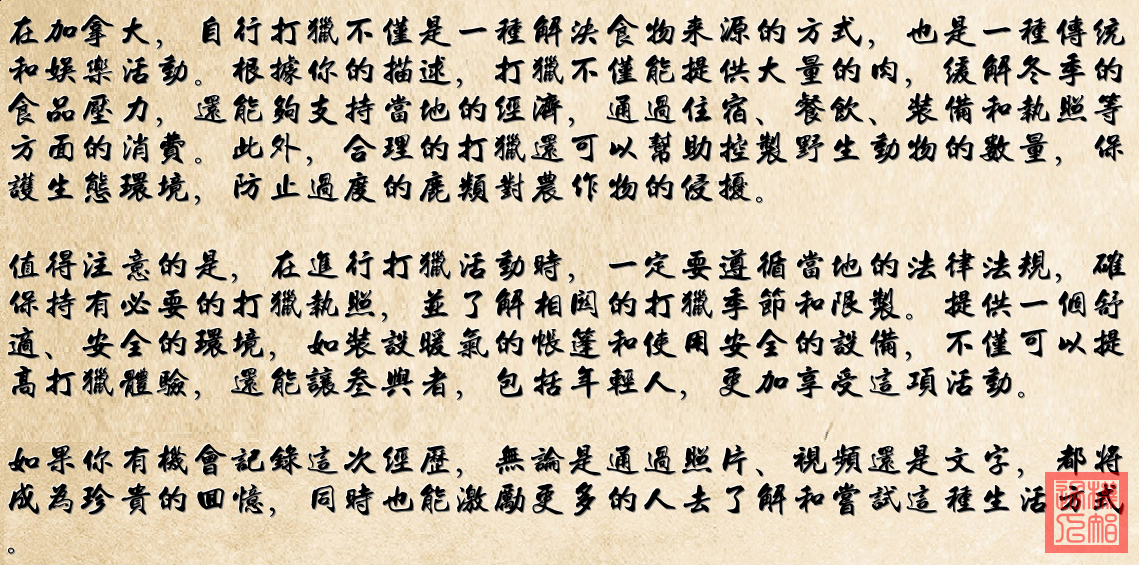 在加拿大，自行打獵不僅是一種解決食物來源的方式，也是一種傳統
和娛樂活動。根據你的描述，打獵不僅能提供大量的肉，緩解冬季的
食品壓力，還能夠支持當地的經濟，通過住宿、餐飲、裝備和執照等
方面的消費。此外，合理的打獵還可以幫助控製野生動物的數量，保
護生態環境，防止過度的鹿類對農作物的侵擾。
值得注意的是，在進行打獵活動時，一定要遵循當地的法律法規，確
保持有必要的打獵執照，並了解相関的打獵季節和限製。提供一個舒
適、安全的環境，如裝設暖氣的帳篷和使用安全的設備，不僅可以提
高打獵體驗，還能讓叁與者，包括年輕人，更加享受這項活動。
如果你有機會記錄這次經歷，無論是通過照片、視頻還是文字，都將
成為珍貴的回憶，同時也能激勵更多的人去了解和嘗試這種生活方式
。